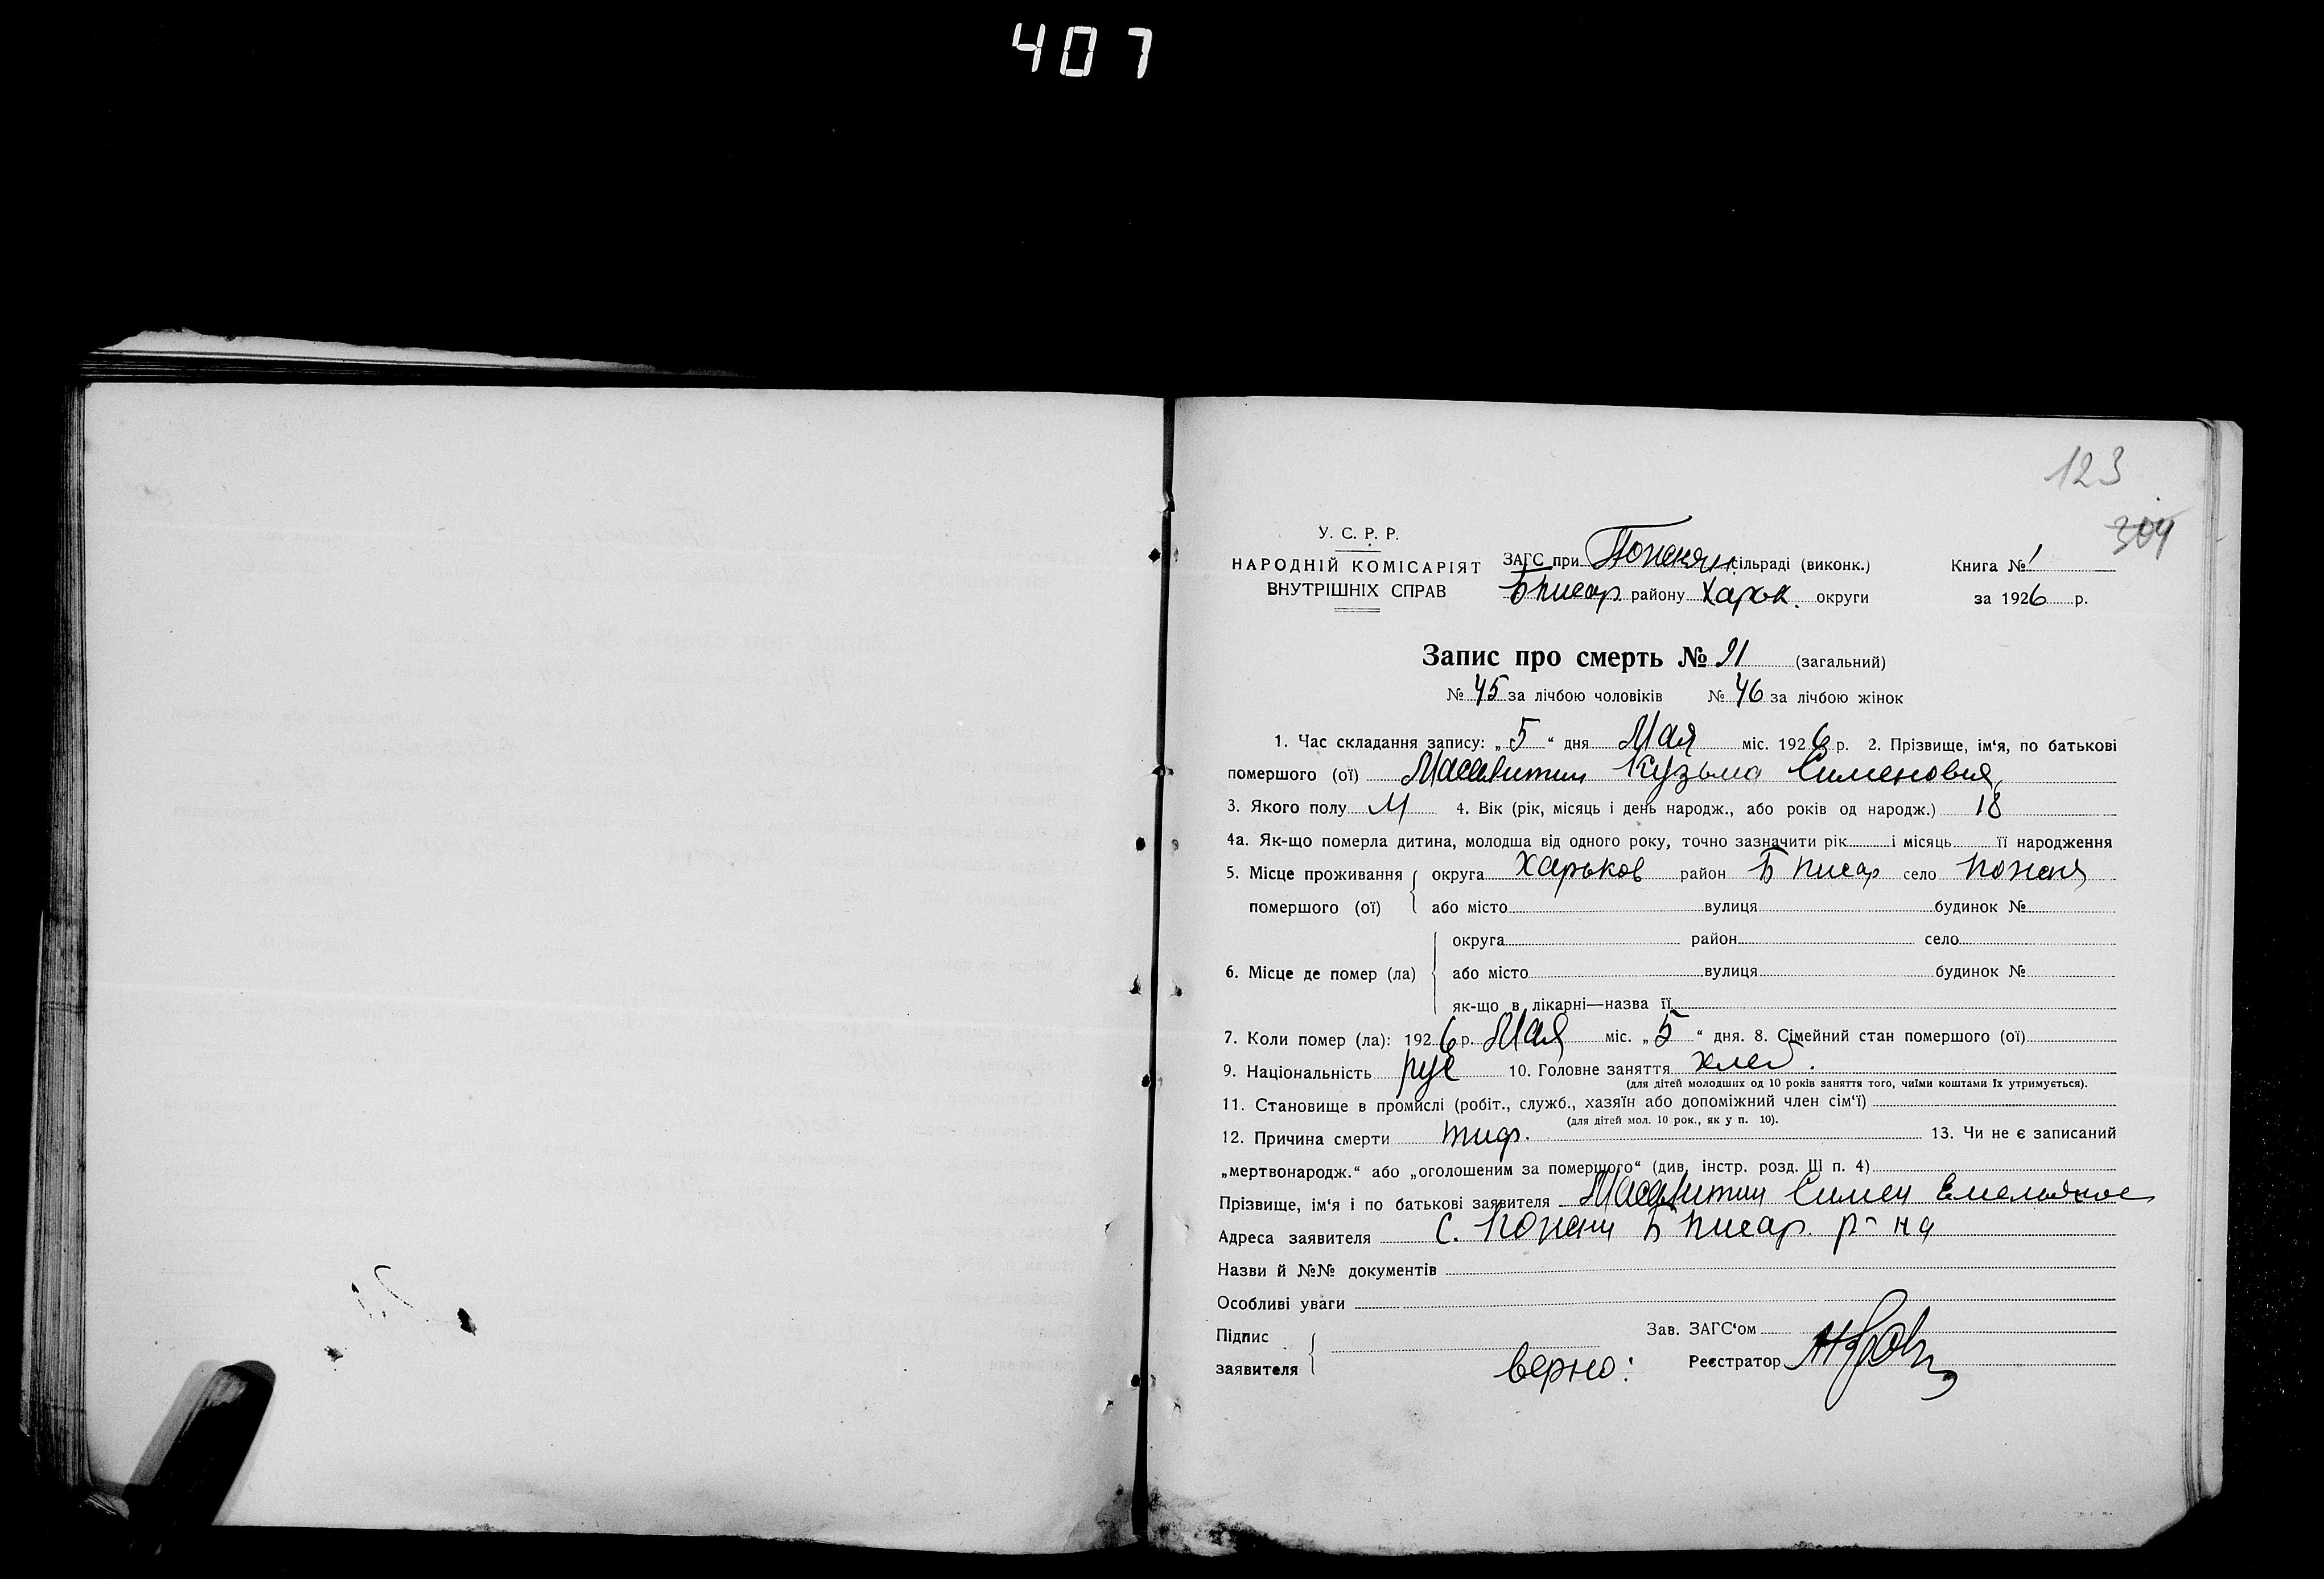 407
123
304
У. С. Р. Р.
НАРОДНІЙ КОМІСАРІЯТ
ВНУТРІШНІХ СПРАВ
ЗАГС при сільраді (виконк.) Книга № 1
Б Писар. району Харьк. округи за 1926 р.
Запис про смерть № 91 (загальний)
№ 45 за лічбою чоловіків № 46 за лічбою жінок
1. Час складання запису: „ 5 “ дня Мая міс. 1926 р. 2. Прізвище, ім‘я, по батькові
помершого (ої) Кузьма Сименовия
3. Якого полу М 4. Вік (рік, місяць і день народж., або років од народж.) 18
4а. Як-що померла дитина, молодша від одного року, точно зазначити рік і місяць її народження
5. Місце проживання округа Харьков район Б Писар село
помершого (ої) або місто вулиця будинок №
округа район село
6. Місце де помер (ла) або місто вулиця будинок №
як-що в лікарні—назва її
7. Коли помер (ла): 1926 р. Мая міс. „ 5 “ дня. 8. Сімейний стан помершого (ої)
9. Національність рус 10. Головне заняття хлеб.
(для дітей молодших од 10 років заняття того, чиїми коштами їх утримується).
11. Становище в промислі (робіт., служб., хазяїн або допоміжний член сім‘ї)
(для дітей мол. 10 рок., як у п. 10).
12. Причина смерти тиф. 13. Чи не є записаний
„мертвонародж.“ або „оголошеним за помершого“ (див. інстр. розд. III п. 4)
Прізвище, ім‘я і по батькові заявителя Симен
Адреса заявителя с. Б Писар. р-на
Назви й №№ документів
Особливі уваги
Підпис
заявителя
Зав. ЗАГС‘ом
верно: Реєстратор